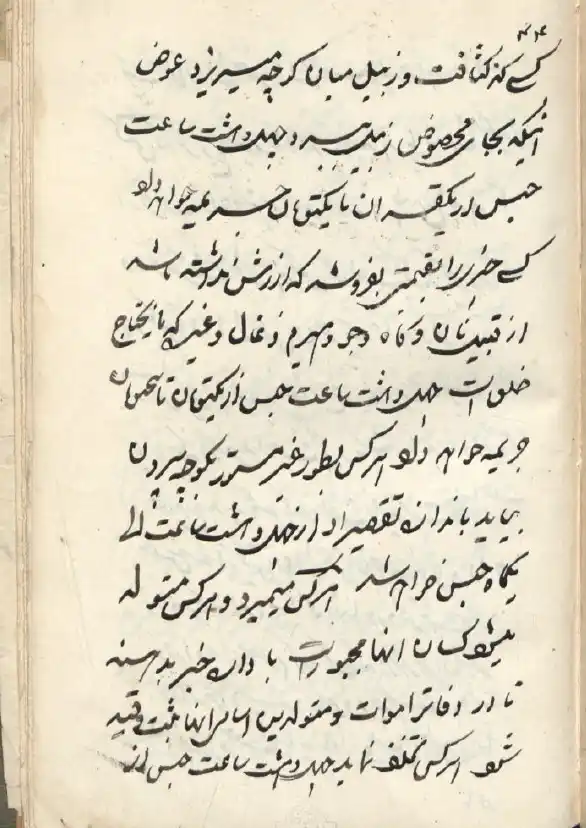 کسی که کثافت و زنبیل میان کوچه میریزد عوض
اینکه بجای مخصوص زنبیل ببرد چهل و هشت ساعت
حبس از یکقران تا یکتومان جریمه خواهد داد
کسی چیزی را بقیمتی بفروشد که ارزش نداشته باشد
از قبیل نان و کاه و جو و هیزم و زغال و غیره که مایحتاج
خلق است چهل و هشت ساعت حبس از یکتومان تا پنجتومان
جریمه خواهد داد هر کس بطور غیر مستور بکوچه بیرون
بیاید باندازه تقصیر او از چهل و هشت ساعت الی
یکماه حبس خواهد شد هر کس میمیرد و هر کس متولد
میشود کسان آنها مجبور است با داره خبر بدهند
تا در دفاتر اموات و متولدین اسامی آنها ثبت و قید
شود هر کس تخلف نماید چهل و هشت ساعت حبس از